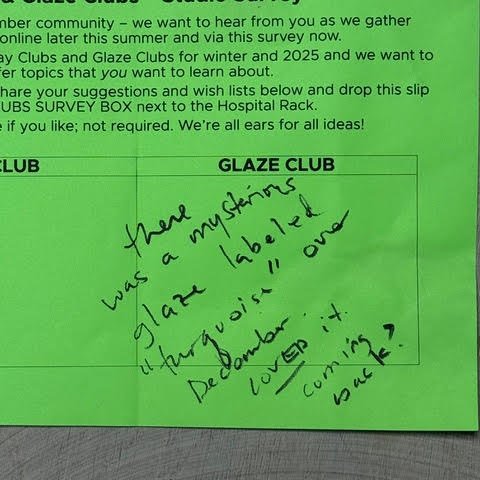 & Glaze Clubs - Studio Survey
mber community – we want to hear from you as we gather
online later this summer and via this survey now.
ay Clubs and Glaze Clubs for winter and 2025 and we want to
fer topics that you want to learn about.
hare your suggestions and wish lists below and drop this slip
LUBS SURVEY BOX next to the Hospital Rack.
e if you like; not required. We're all ears for all ideas!
CLUB
GLAZE CLUB
there
was a mysterious
glaze labeled
"turquoise" over
December.
LOVED it.
coming
back?